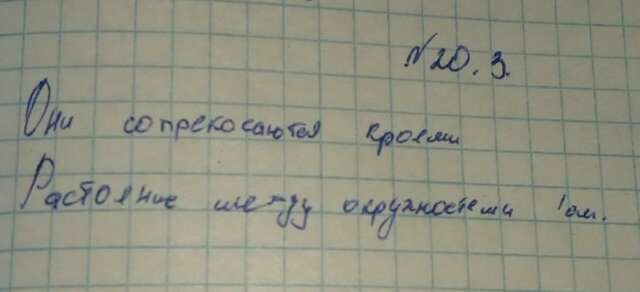 №20.3.
Они сопрекосаются кроями
Растояние между окружностеми 1см.